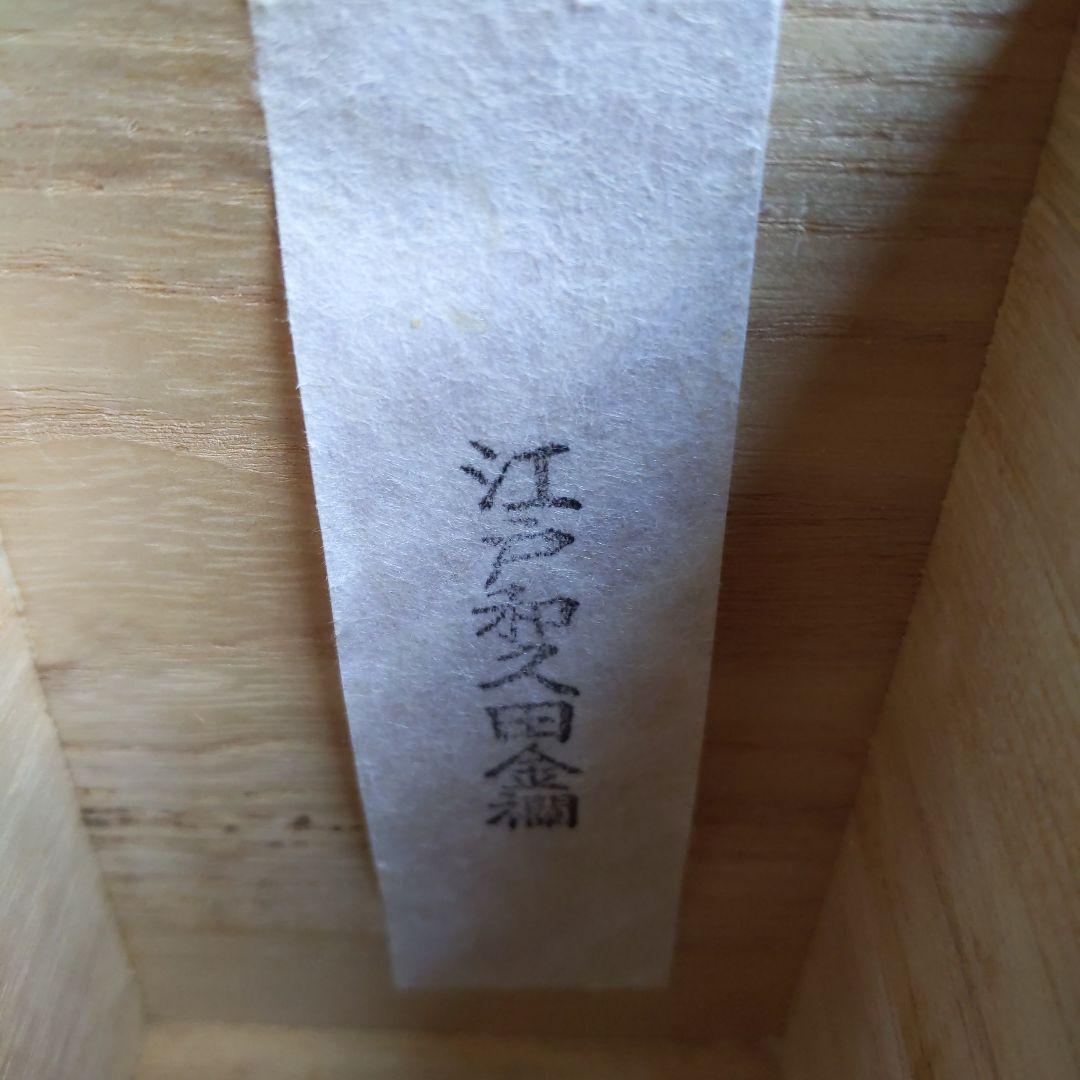 江戸和久田金襴